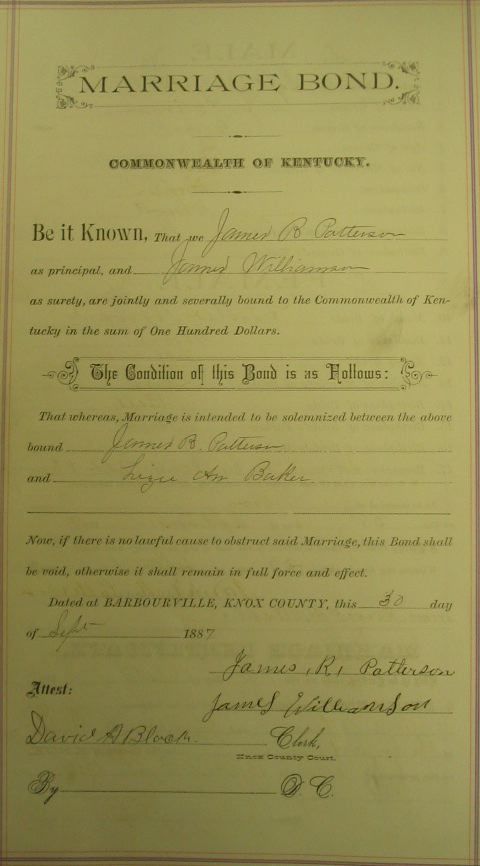 MARRIAGE BOND.
COMMONWEALTH OF KENTUCKY.
Be it Known, That we James B Patterson
as principal, and James Williamson
as surety, are jointly and severally bound to the Commonwealth of Ken-
tucky in the sum of One Hundred Dollars.
The Condition of this Bond is as Follows:
That whereas, Marriage is intended to be solemnized between the above
bound James B. Patterson
and Lizie An Baker
Now, if there is no lawful cause to obstruct said Marriage, this Bond shall
be void, otherwise it shall remain in full force and effect.
Dated at BARBOURVILLE, KNOX COUNTY, this 30 day
of Sept 1887
James, R, Patterson
Attest:
James Williamson
David A Black Clerk,
Knox County Court.
By D. C.